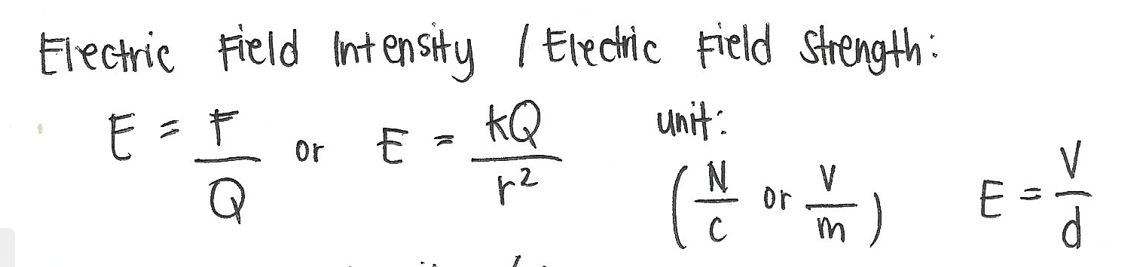 Electric Field Intensity / Electric Field Strength:
E = F/Q or E = kQ/r² unit: (N/C or V/m) E = V/d